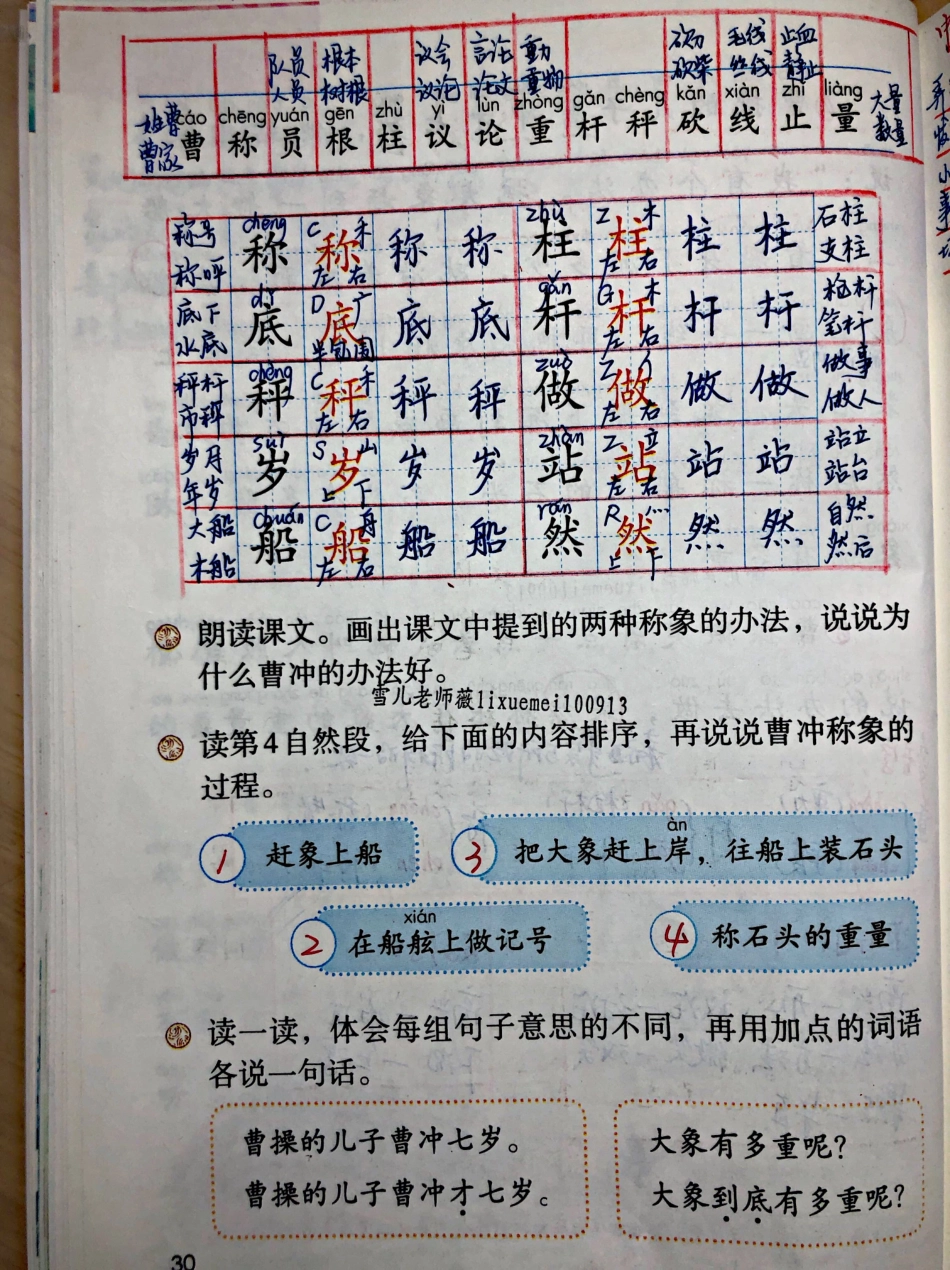 队员 根本 议会 言论 動 砍刀 毛线 止血
人员 树根 议论 论文 重物 砍柴 丝线 静止
cáo chēng yuán gēn zhù yì lùn zhòng gǎn chèng kǎn xiàn zhǐ liàng
姓曹 曹 称 员 根 柱 议 论 重 杆 秤 砍 线 止 量 大量
曹家 数量
chēng C 禾 zhù Z 木
称号 称 称 称 称 柱 柱 柱 柱 石柱
称呼 左 右 左 右 支柱
dǐ D 广 gǎn G 木
底下 底 底 底 底 杆 杆 杆 杆 枪杆
水底 半包围 左 右 笔杆
chèng C 禾 zuò Z 亻
秤杆 秤 秤 秤 秤 做 做 做 做 做事
市秤 左 右 左 右 做人
suì S 山 zhàn Z 立
岁月 岁 岁 岁 岁 站 站 站 站 站立
年岁 上 下 左 右 站台
chuán C 舟 rán R 灬
大船 船 船 船 船 然 然 然 然 自然
木船 左 右 上 下 然后
朗读课文。画出课文中提到的两种称象的办法，说说为
什么曹冲的办法好。
雪儿老师薇lixuemei100913
读第4自然段，给下面的内容排序，再说说曹冲称象的
过程。
àn
1 赶象上船 3 把大象赶上岸，往船上装石头
xián
2 在船舷上做记号 4 称石头的重量
读一读，体会每组句子意思的不同，再用加点的词语
各说一句话。
曹操的儿子曹冲七岁。 大象有多重呢？
曹操的儿子曹冲才七岁。 大象到底有多重呢？
30